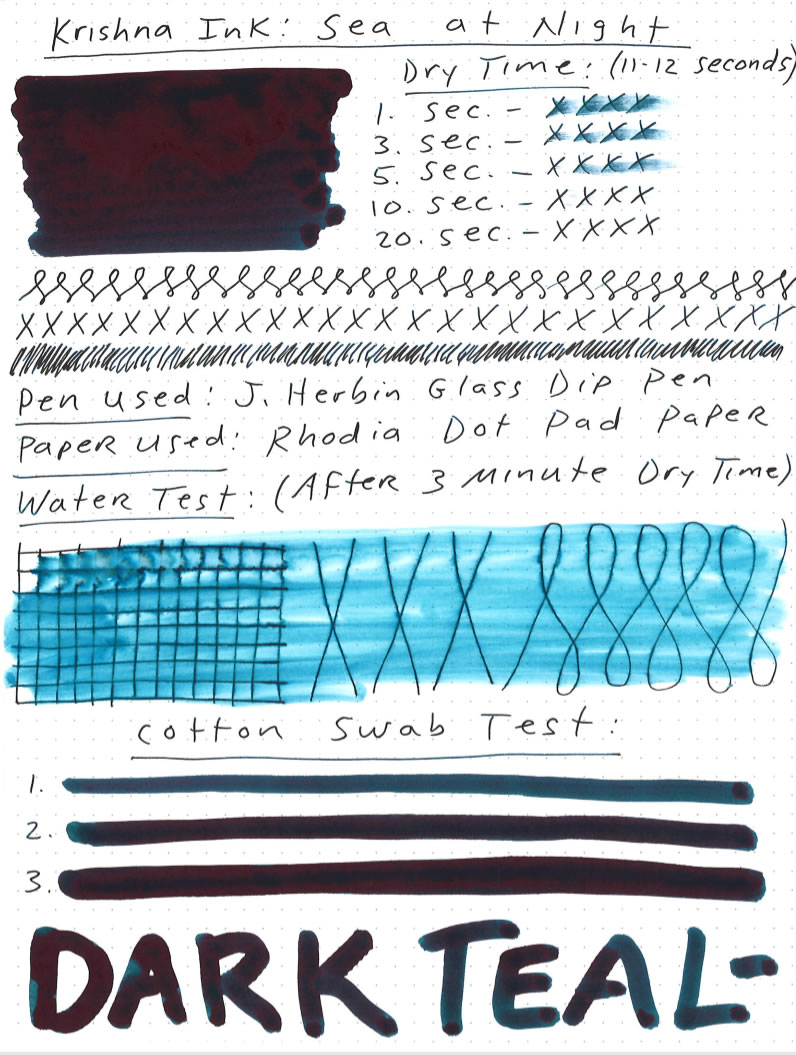 Krishna Ink: Sea at Night
Dry Time: (11-12 seconds)
1. sec. - XXXX
3. sec. - XXXX
5. sec. - XXXX
10. sec. - XXXX
20. sec. - XXXX
XXXXXXXXXXXXXXXXXXXXXXXXXXX
Pen used: J. Herbin Glass Dip Pen
Paper used: Rhodia Dot Pad Paper
Water Test: (After 3 Minute Dry Time)
XXX
Cotton Swab Test:
1.
2.
3.
DARK TEAL-